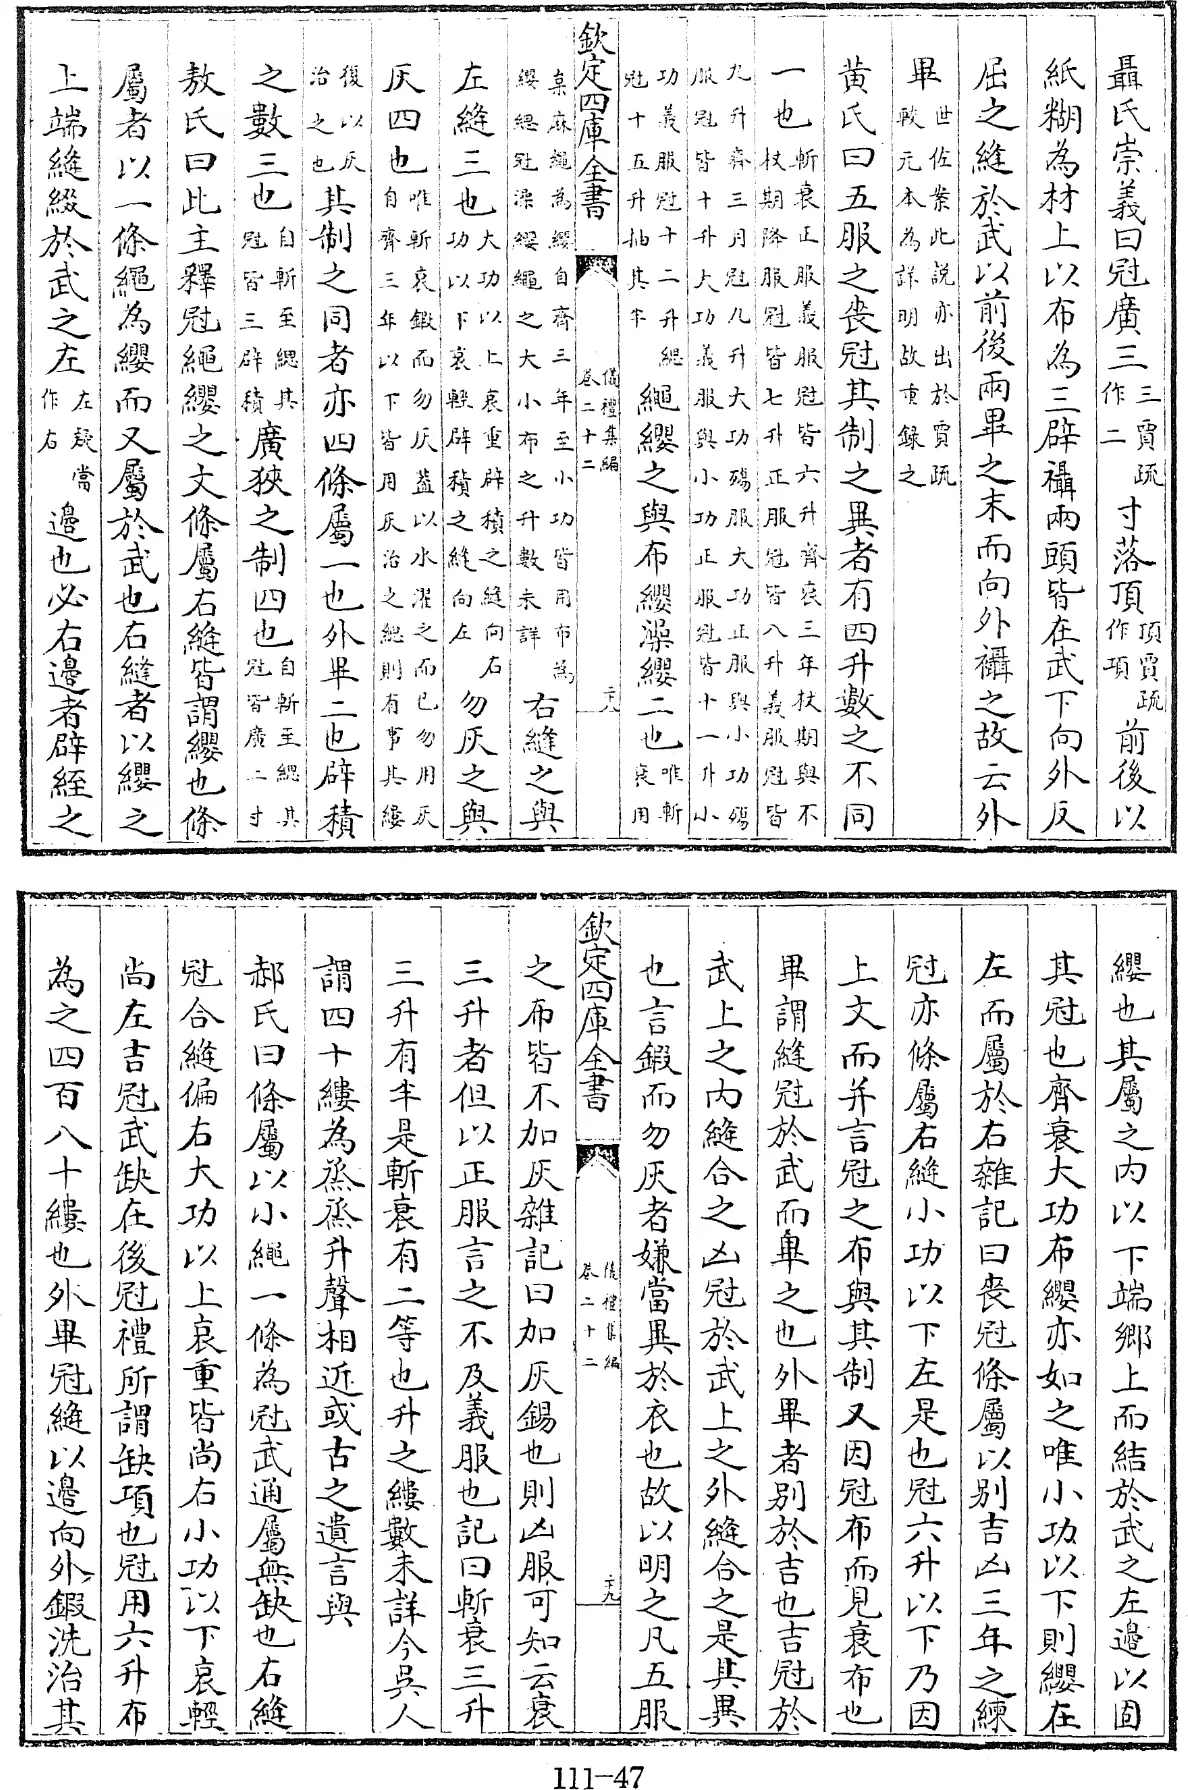 聶氏崇義曰冠廣三三賈疏作二寸落頂頂賈疏作項前後以
紙糊為材上以布為三辟襵兩頭皆在武下向外反
屈之縫於武以前後兩畢之末而向外襵之故云外
畢世佐案此説亦出於賈疏較元本為詳明故重録之
黄氏曰五服之喪冠其制之異者有四升數之不同
一也斬衰正服義服冠皆六升齊衰三年杖期與不杖期降服冠皆七升正服冠皆八升義服冠皆
九升齊三月冠九升大功殤服大功正服與小功殤服冠皆十升大功義服與小功正服冠皆十一升小
功義服冠十二升緦冠十五升抽其半繩纓之與布纓澡纓二也唯斬衰用
欽定四庫全書 儀禮集編卷二十二 二十八
枲麻繩為纓自齊三年至小功皆用布為纓緦冠澡纓繩之大小布之升數未詳右縫之與
左縫三也大功以上哀重辟積之縫向右功以下哀輕辟積之縫向左勿灰之與
灰四也唯斬衰鍛而勿灰蓋以水濯之而已勿用灰自齊三年以下皆用灰治之緦則有事其縷
復以灰治之也其制之同者亦四條屬一也外畢二也辟積
之數三也自斬至緦其冠皆三辟積廣狹之制四也自斬至緦其冠皆廣二寸
敖氏曰此主釋冠繩纓之文條屬右縫皆謂纓也條
屬者以一條繩為纓而又屬於武也右縫者以纓之
上端縫綴於武之左左疑當作右邊也必右邊者辟絰之
纓也其屬之内以下端鄉上而結於武之左邊以固
其冠也齊衰大功布纓亦如之唯小功以下則纓在
左而屬於右雜記曰喪冠條屬以别吉凶三年之練
冠亦條屬右縫小功以下左是也冠六升以下乃因
上文而并言冠之布與其制又因冠布而見衰布也
畢謂縫冠於武而畢之也外畢者别於吉也吉冠於
武上之内縫合之凶冠於武上之外縫合之是其異
也言鍛而勿灰者嫌當異於衣也故以明之凡五服
欽定四庫全書 儀禮集編卷二十二 二十九
之布皆不加灰雜記曰加灰錫也則凶服可知云衰
三升者但以正服言之不及義服也記曰斬衰三升
三升有半是斬衰有二等也升之縷數未詳今吳人
謂四十縷為烝烝升聲相近或古之遺言與
郝氏曰條屬以小繩一條為冠武通屬無缺也右縫
冠合縫偏右大功以上哀重皆尚右小功以下哀輕
尚左吉冠武缺在後冠禮所謂缺項也冠用六升布
為之四百八十縷也外畢冠縫以邊向外鍛洗治其
111-47